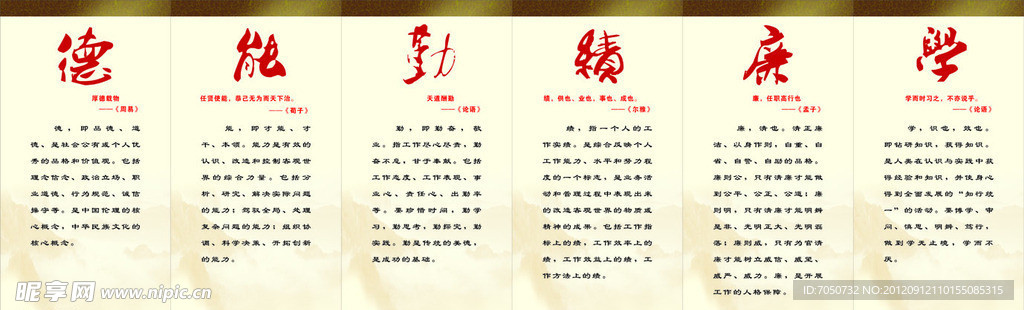 德
厚德载物
——《周易》
德，即品德、道
德、是社会公有或个人优
秀的品格和价值观。包括
理念信念、政治立场、职
业道德、行为规范、诚信
操守等。是中国伦理的核
心概念，中华民族文化的
核心概念。
能
任贤使能，恭己无为而天下治。
——《荀子》
能，即才能、才
干、本领。能力是有效的
认识、改造和控制客观世
界的综合力量。包括分
析、研究、解决实际问题
的能力；驾驭全局、处理
复杂问题的能力；组织协
调、科学决策、开拓创新
的能力。
勤
天道酬勤
——《论语》
勤，即勤奋，敬
业。指工作尽心尽责，勤
奋不怠，甘于奉献。包括
工作态度、工作表现、事
业心、责任心、出勤率
等。要珍惜时间，勤学
习，勤思考，勤探究，勤
实践。勤是传统的美德，
是成功的基础。
績
绩，供也、业也，事也、成也。
——《尔雅》
绩，指一个人的工
作实绩。是综合反映个人
工作能力、水平和努力程
度的一个标志，是业务活
动和管理过程中表现出来
的改造客观世界的物质或
精神的成果。包括工作指
标上的绩，工作效率上的
绩，工作效益上的绩，工
作方法上的绩。
廉
廉，任职高行也
——《孟子》
廉，清也。清正廉
洁、以身作则，自重、自
省、自警、自励的品格。
廉则公，只有清廉才能做
到公平、公正、公道；廉
则明，只有清廉才能明辨
是非、无明正大、无明磊
落；廉则威，只有为官清
廉才能树立威信、威望、
威严、威力。廉，是开展
工作的人格保障。
學
学而时习之，不亦说乎。
——《论语》
学，识也，效也。
即钻研知识，获得知识。
是人类在认识与实践中获
得经验和知识，并使身心
得到全面发展的“知行统
一”的活动。要博学、审
问、慎思、明辨、笃行，
做到学无止境，学而不
厌。
昵享网 www.nipic.cn
ID:7050732 NO:20120912110155085315